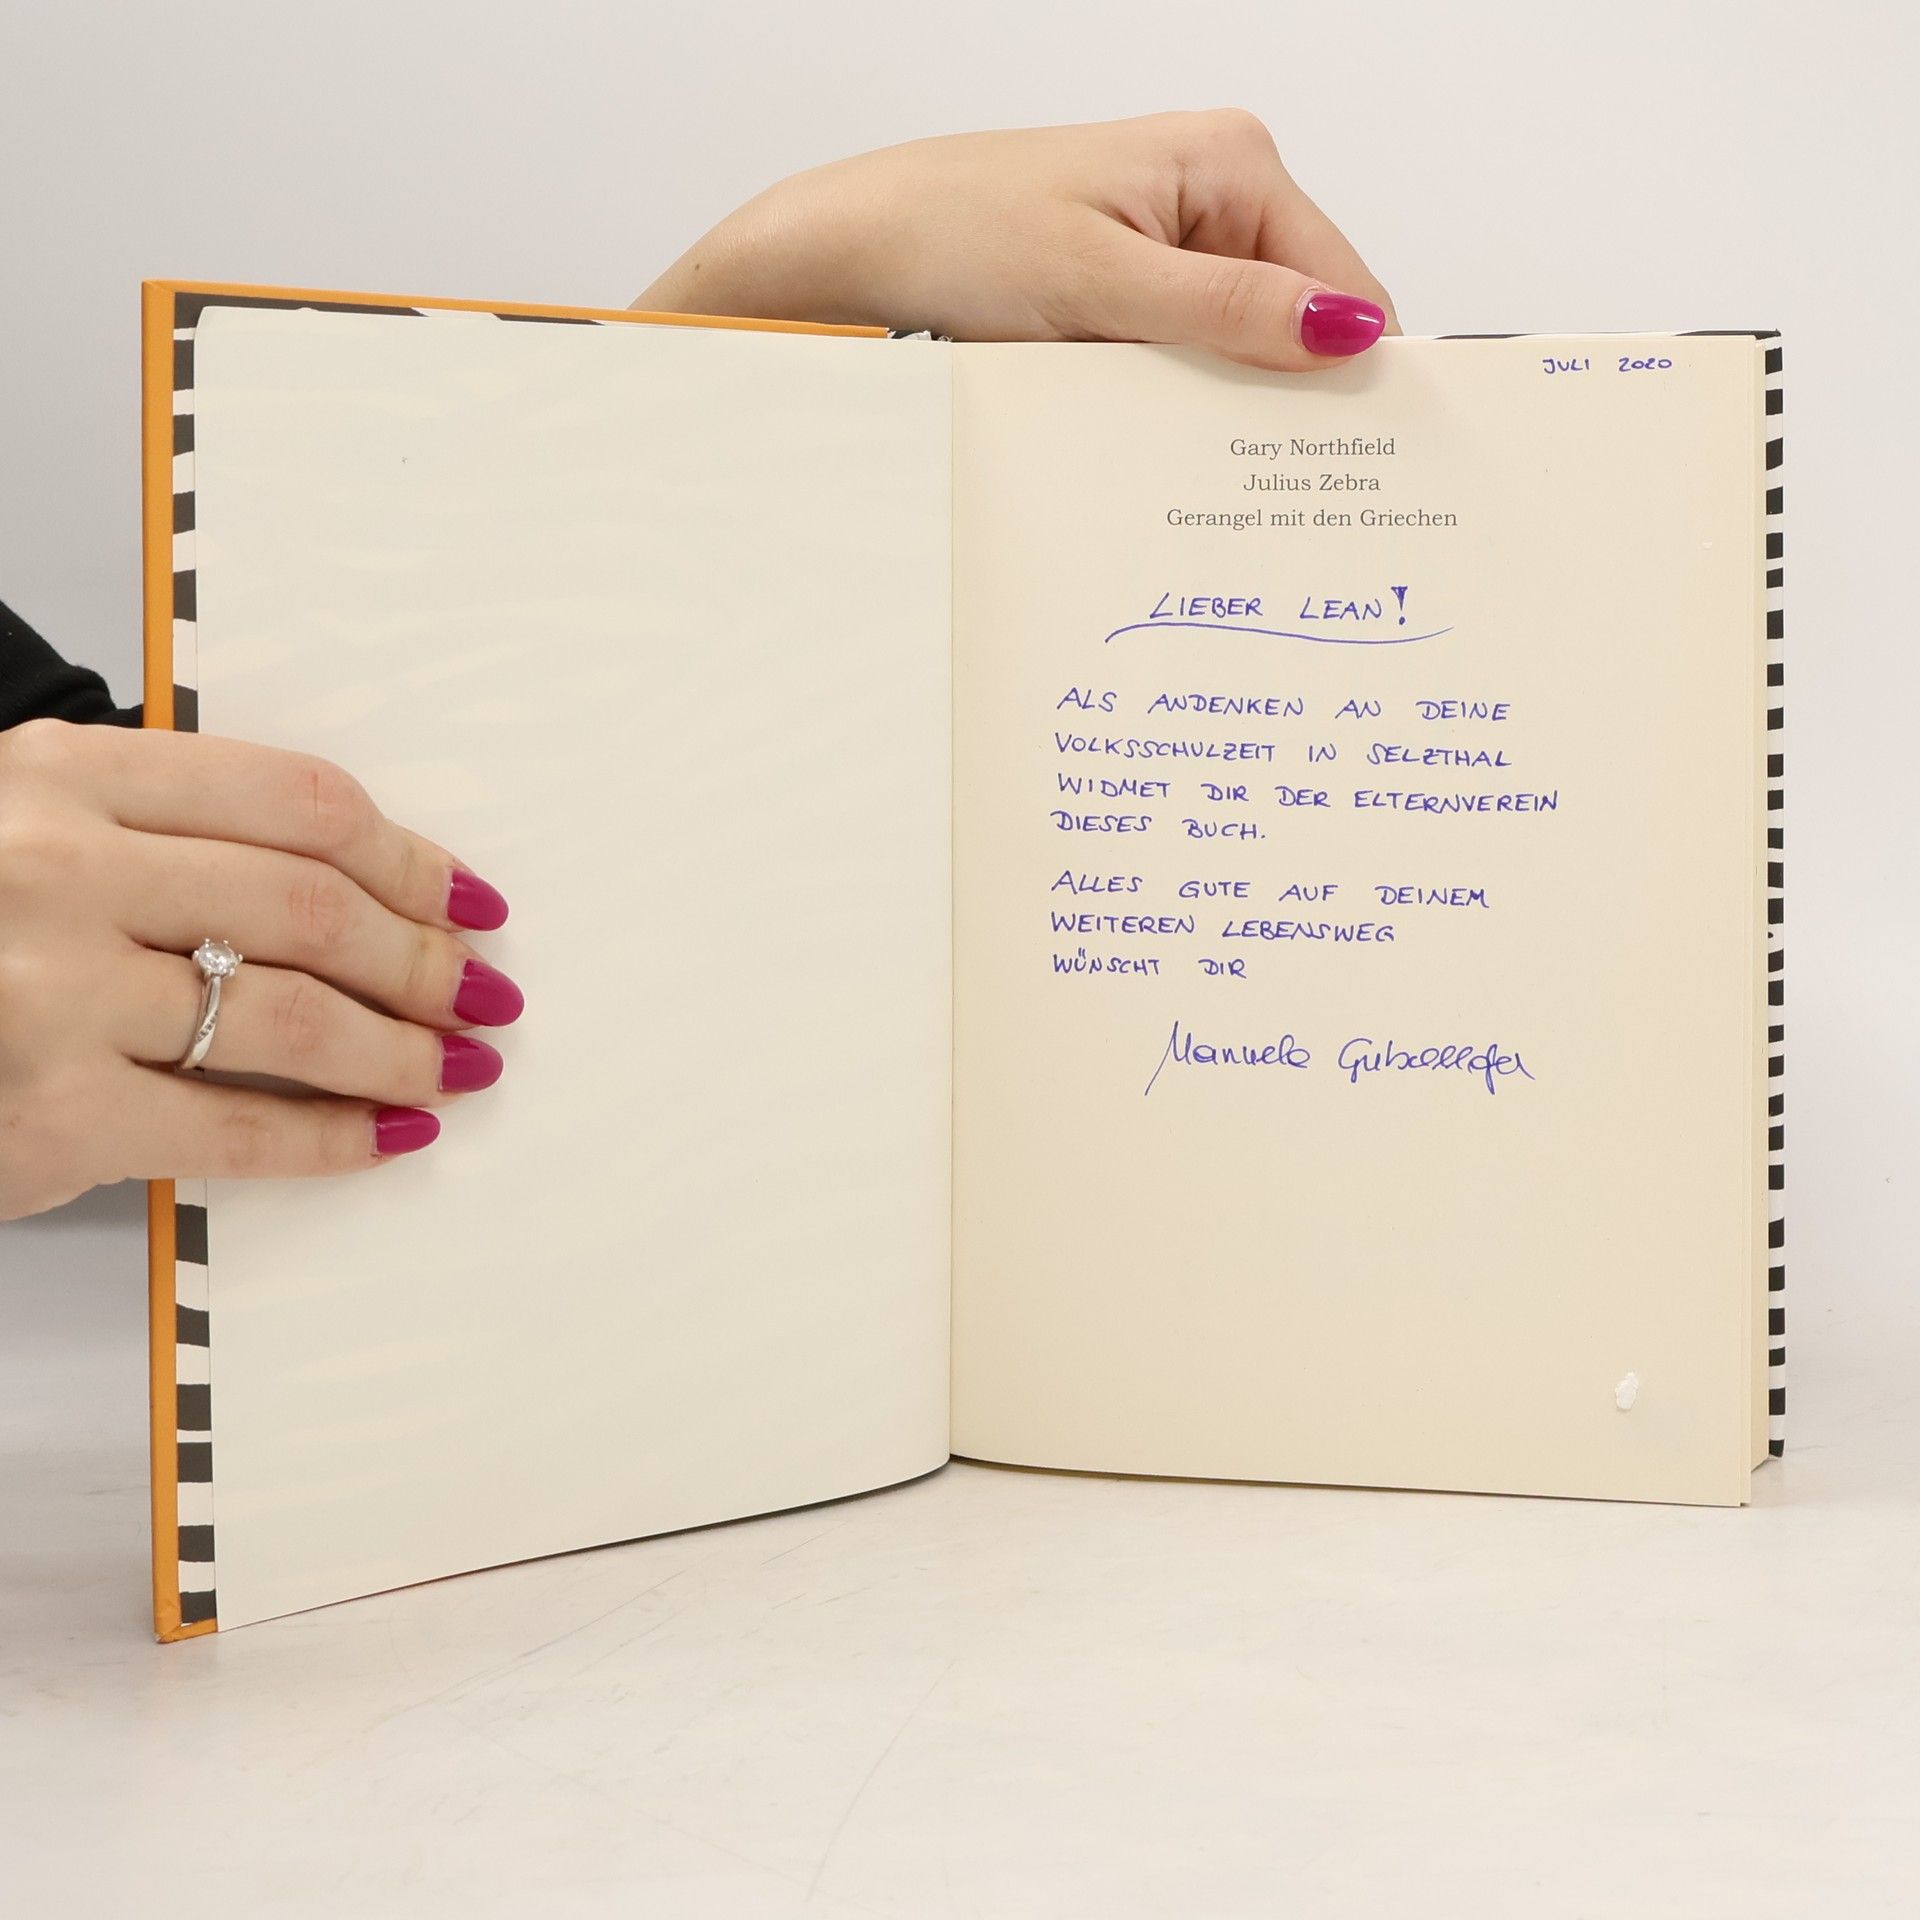 JULI 2020
Gary Northfield
Julius Zebra
Gerangel mit den Griechen
LIEBER LEAN!
ALS ANDENKEN AN DEINE
VOLKSSCHULZEIT IN SELZTHAL
WIDMET DIR DER ELTERNVEREIN
DIESES BUCH.
ALLES GUTE AUF DEINEM
WEITEREN LEBENSWEG
WÜNSCHT DIR
Manuela